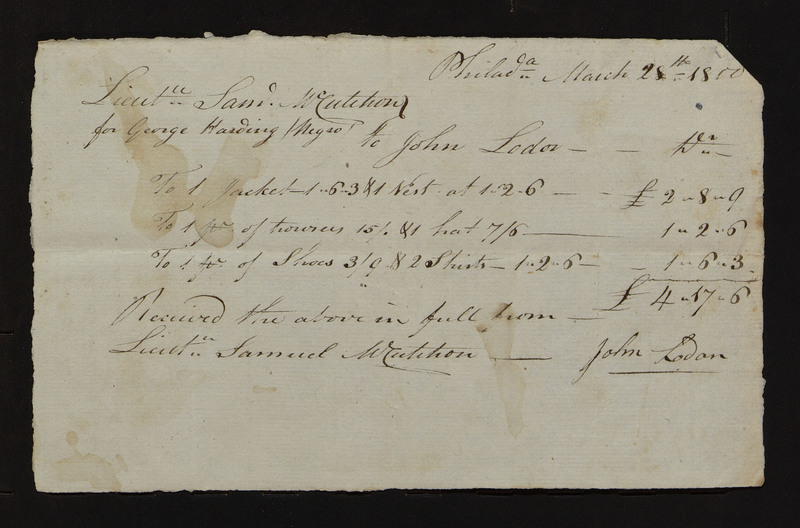 Philad.a March 28th 1800
Lieut.t Sam.l McCutchon
for George Harding (Negro) to John Lodor — — Dr
To 1 Jacket 1-6-3 & 1 Vest at 1-2-6 — — £ 2-8-9
To 1 pr of trowsers 15/. & 1 hat 7/6 — 1-2-6
To 1 pr of Shoes 3/9 & 2 Shirts 1-2-6 — — 1-6-3
£ 4-17-6
Received the above in full from —
Lieut.t Samuel McCutchon — John Lodor